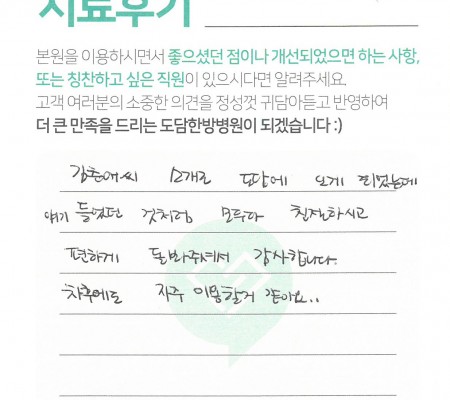 치료후기
본원을 이용하시면서 좋으셨던 점이나 개선되었으면 하는 사항,
또는 칭찬하고 싶은 직원이 있으시다면 알려주세요.
고객 여러분의 소중한 의견을 정성껏 귀담아듣고 반영하여
더 큰 만족을 드리는 도담한방병원이 되겠습니다 :)
김춘애씨 소개로 도담에 오게 되었는데
얘기 들었던 것처럼 모두다 친절하시고
편하게 돌봐주셔서 감사합니다.
차후에도 자주 이용할거 같아요..